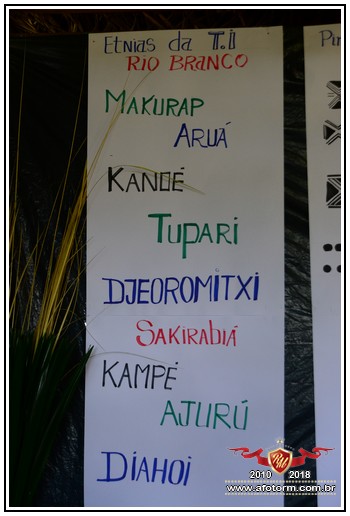 Etnias da T.I
Rio Branco
Makurap
Aruá
Kanoé
Tupari
Djeoromitxi
Sakirabiá
Kampé
Ajurú
Diahoi
2010 2018
www.afotorm.com.br